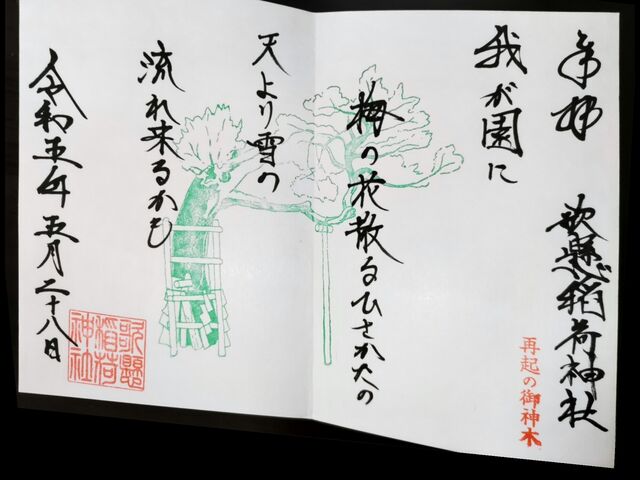 奉拝
歌懸稲荷神社
再起の御神木
我が園に
梅の花散るひさかたの
天より雪の
流れ来るかも
令和五年五月二十八日
歌懸
稲荷
神社